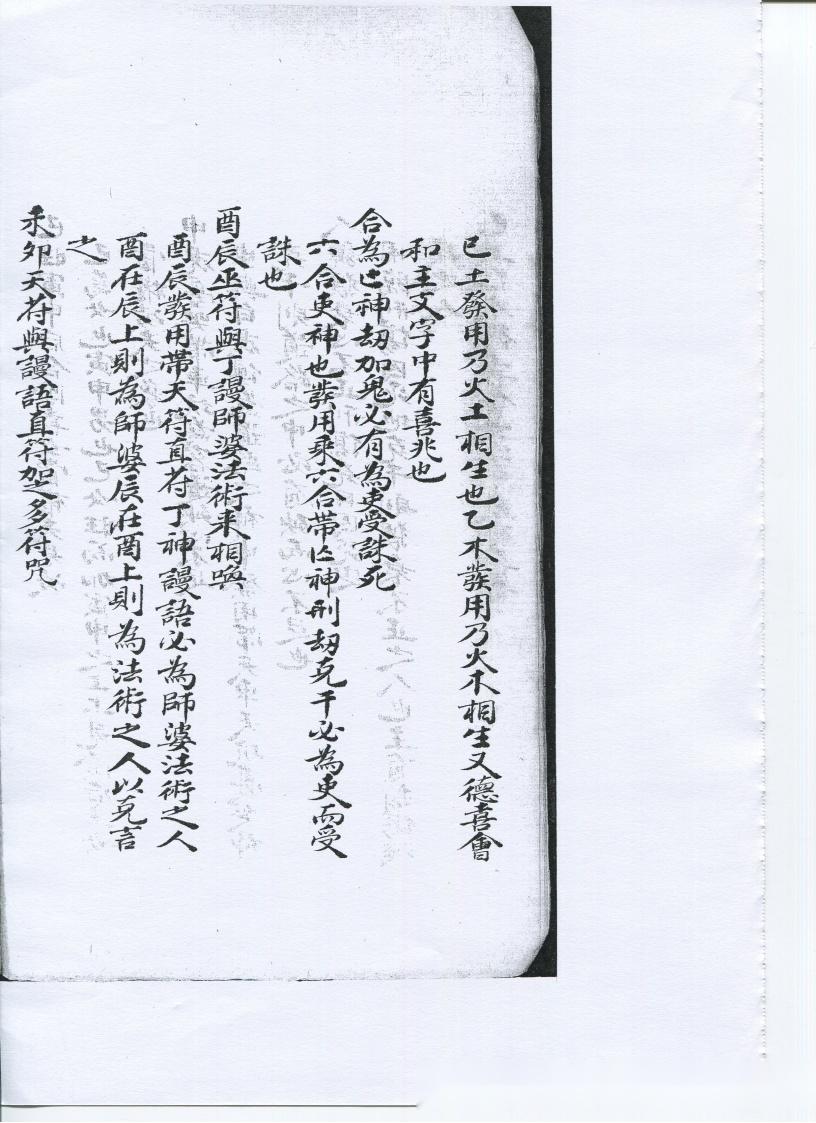 巳土發用乃火土相生也乙木發用乃火木相生又德喜會
和主文字中有喜兆也
合為亡神劫加鬼必有為吏受誅死
六合吏神也發用乘六合帶亡神刑劫克干必為吏而受
誅也
酉辰巫符與丁謾師婆法術來相喚
酉辰發用帶天符直符丁神謾語必為師婆法術之人
酉在辰上則為師婆辰在酉上則為法術之人以克言
之
未卯天符與謾語直符加之多符咒